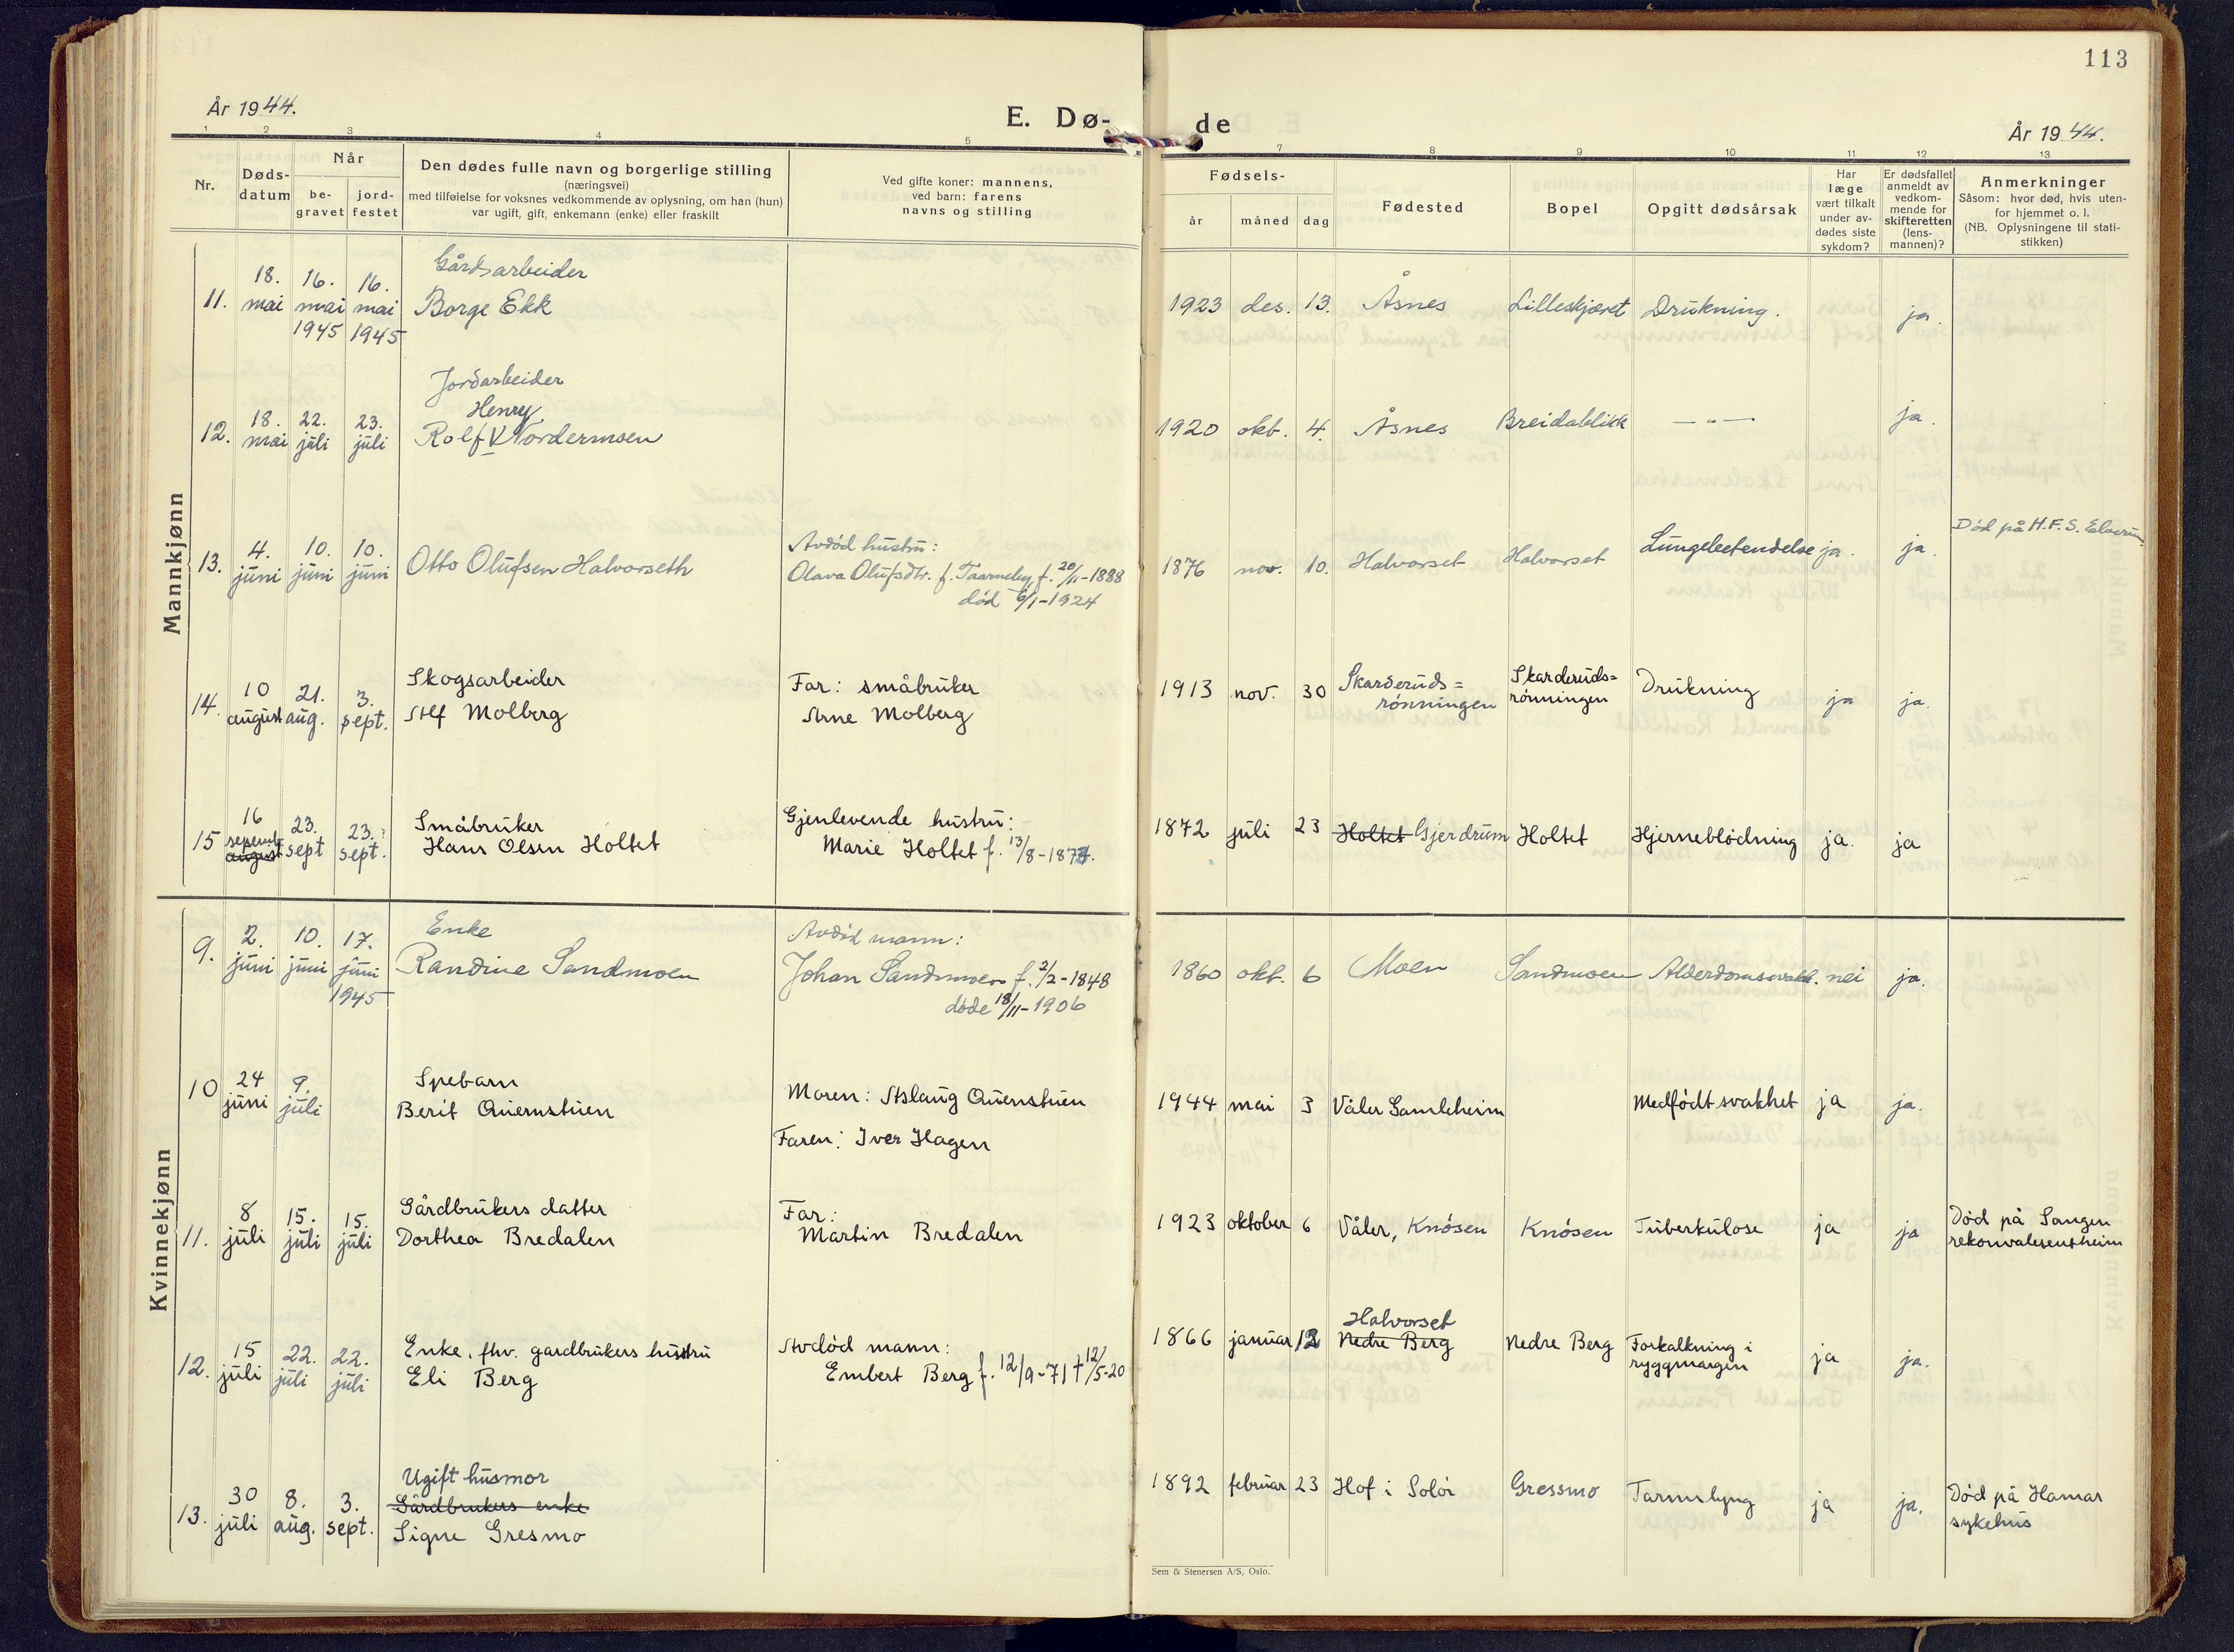 113
År 1944.
E. Dø-
de
År 1944.
1 2 3 4 5 7 8 9 10 11 12 13
Nr.
Døds-
datum
Når
be-
gravet
jord-
festet
Den dødes fulle navn og borgerlige stilling
(næringsvei)
med tilføielse for voksnes vedkommende av oplysning, om han (hun)
var ugift, gift, enkemann (enke) eller fraskilt
Ved gifte koner: mannens,
ved barn: farens
navns og stilling
Fødsels-
år måned dag
Fødested
Bopel
Opgitt dødsårsak
Har
læge
vært tilkalt
under av-
dødes siste
sykdom?
Er dødsfallet
anmeldt av
vedkom-
mende for
skifteretten
(lens-
mannen)?
Anmerkninger
Såsom: hvor død, hvis uten-
for hjemmet o. l.
(NB. Oplysningene til stati-
stikken)
Mannkjønn
Gårdsarbeider
18. 16. 16.
11. mai mai mai Borge Ekk 1923 des. 13. Åsnes Lilleskjæret Drukning. ja.
1945 1945
Jordarbeider
Henry
18. 22. 23.
12. mai juli juli Rolf V Nordermoen 1920 okt. 4. Åsnes Breidablikk —„— ja.
Død på H.F.S. Elverum.
4. 10. 10. Avdød hustru:
13. juni juni juni Otto Olufsen Halvorseth Olava Olufsdtr. f. Taarneby, f. 20/11-1888 1876 nov. 10. Halvorset Halvorset Lungebetendelse ja. ja.
død 6/1-1924
10 21. 3. Skogsarbeider Far: småbruker 1913 nov. 30 Skarderuds= Skarderuds= Drukning ja ja.
14. august aug. sept. Alf Molberg Arne Molberg rønningen rønningen
16 23. 23. Småbruker Gjenlevende hustru: 1872 juli 23 Holtet Gjerdrum Holtet Hjerneblødning ja. ja
15 septemb. august sept sept. Hans Olsen Holtet Marie Holtet f. 13/8-1874.
Kvinnekjønn
2. 10. 17. Enke Avdød mann:
9. juni juni juni Randine Sandmoen Johan Sandmoen f. 2/2-1848 1860 okt. 6 Moen Sandmoen Alderdomssvakh. nei ja.
1945 døde 18/11-1906
24 9. Spebarn
10 juni juli Berit Quernstuen Moren: Aslaug Quernstuen 1944 mai 3 Våler Samleheim Medfødt svakhet ja ja.
Faren: Iver Hagen
8 15. 15. Gårdbrukers datter Far: 1923 oktober 6 Våler, Knösen Knösen Tuberkulose ja ja Død på Sangen
11. juli juli juli Dorthea Bredalen Martin Bredalen rekonvalesentheim
Halvorset
15 22. 22. Enke, fhv. gardbrukers hustru Avdød mann: 1866 januar 12 Nedre Berg Nedre Berg Forkalkning i ja ja.
12. juli juli juli Eli Berg Embert Berg f. 12/9-71 † 12/5-20 ryggmargen
Ugift husmor
30 8. 3. Gårdbrukers enke 1892 februar 23 Hof i Solør Gressmo Tarmslyng ja ja. Død på Hamar
13. juli aug. sept. Signe Gresmo sykehus
Sem & Stenersen A/S, Oslo.